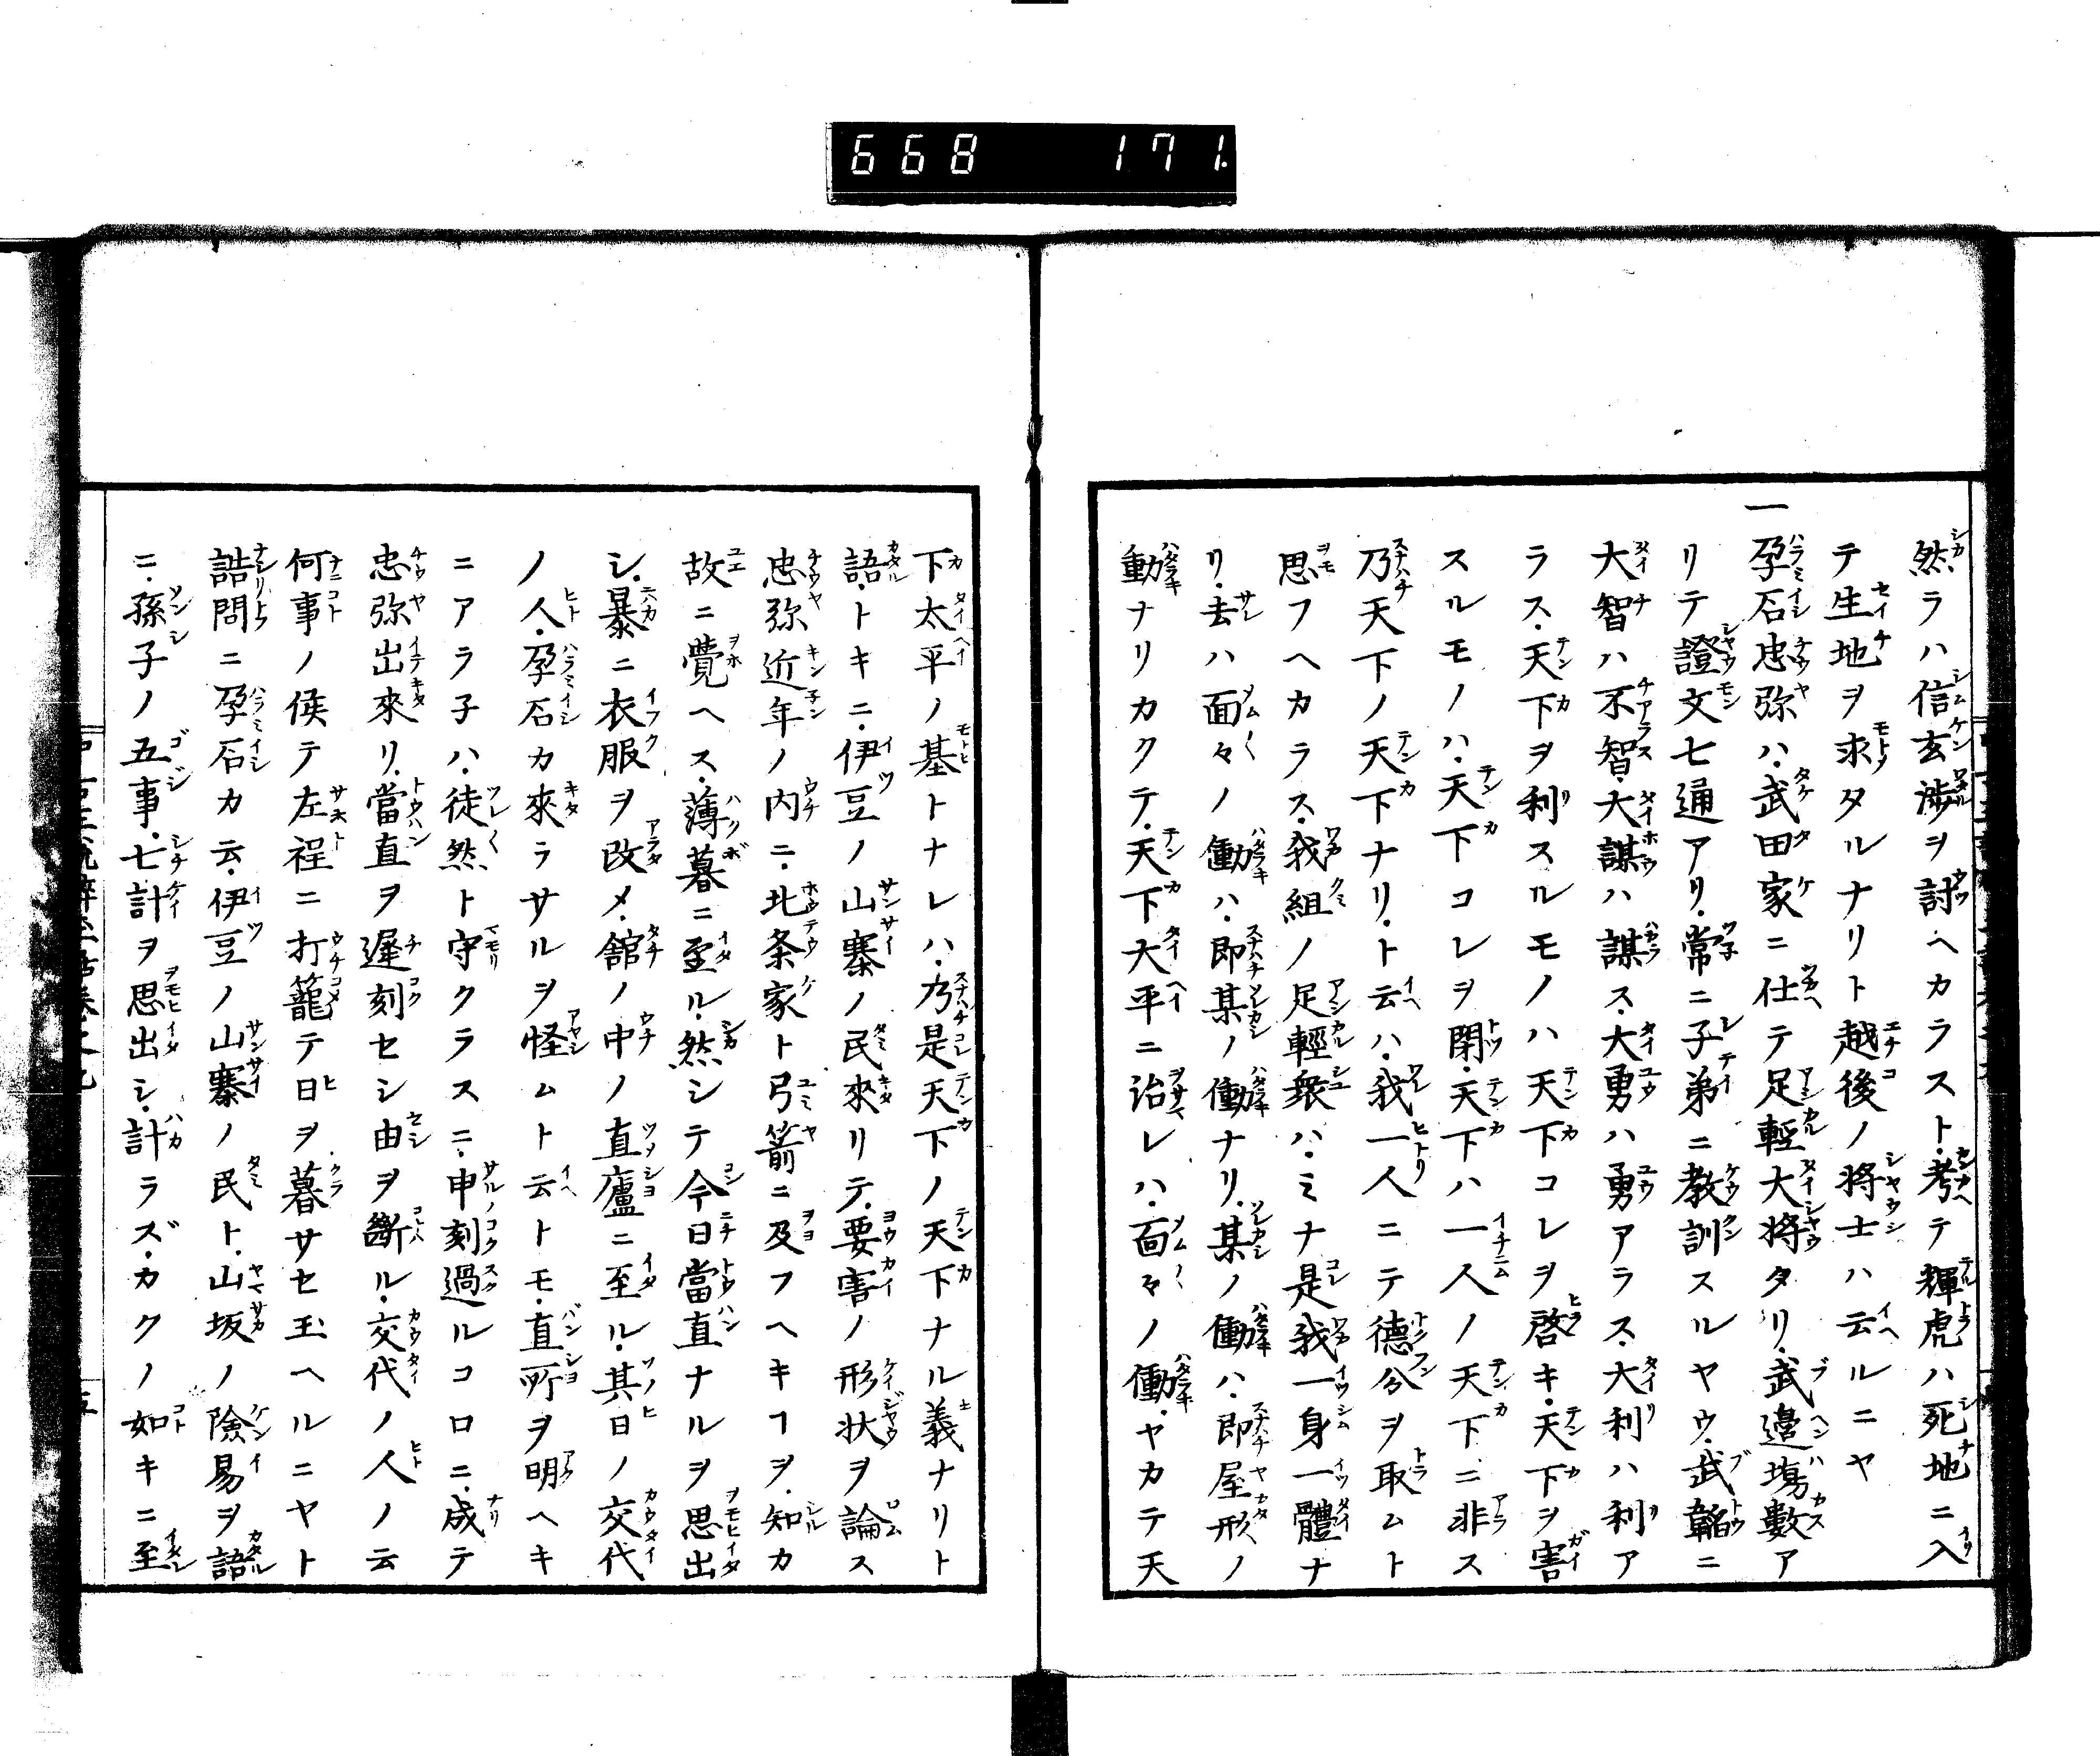 668 171.
然ラハ信玄渉ヲ討ヘカラスト考テ輝虎ハ死地ニ入
テ生地ヲ求タルナリト越後ノ将士ハ云ルニヤ
一孕石忠弥ハ武田家ニ仕テ足輕大将タリ武邉塲數ア
リテ證文七通アリ常ニ子弟ニ教訓スルヤウ武韜ニ
大智ハ不智大謀ハ謀ス大勇ハ勇アラス大利ハ利ア
ラス天下ヲ利スルモノハ天下コレヲ啓キ天下ヲ害
スルモノハ天下コレヲ閉天下ハ一人ノ天下ニ非ス
乃天下ノ天下ナリト云ハ我一人ニテ德分ヲ取ムト
思フヘカラス我組ノ足輕衆ハミナ是我一身一體ナ
リ去ハ面々ノ働ハ即某ノ働ナリ某ノ働ハ即屋形ノ
動ナリカクテ天下大平ニ治レハ面々ノ働ヤカテ天
下太平ノ基トナレハ乃是天下ノ天下ナル義ナリト
語トキニ伊豆ノ山寨ノ民來リテ要害ノ形状ヲ論ス
忠弥近年ノ内ニ北条家ト弓箭ニ及フヘキヿヲ知カ
故ニ覺ヘス薄暮ニ至ル然シテ今日當直ナルヲ思出
シ暴ニ衣服ヲ改メ舘ノ中ノ直廬ニ至ル其日ノ交代
ノ人孕石カ來ラサルヲ怪ムト云トモ直所ヲ明ヘキ
ニアラ子ハ徒然ト守クラスニ申刻過ルコロニ成テ
忠弥出來リ當直ヲ遲刻セシ由ヲ斷ル交代ノ人ノ云
何事ノ侯テ左程ニ打籠テ日ヲ暮サセ玉ヘルニヤト
詰問ニ孕石カ云伊豆ノ山寨ノ民ト山坂ノ險易ヲ語
ニ孫子ノ五事七計ヲ思出シ計ラズカクノ如キニ至